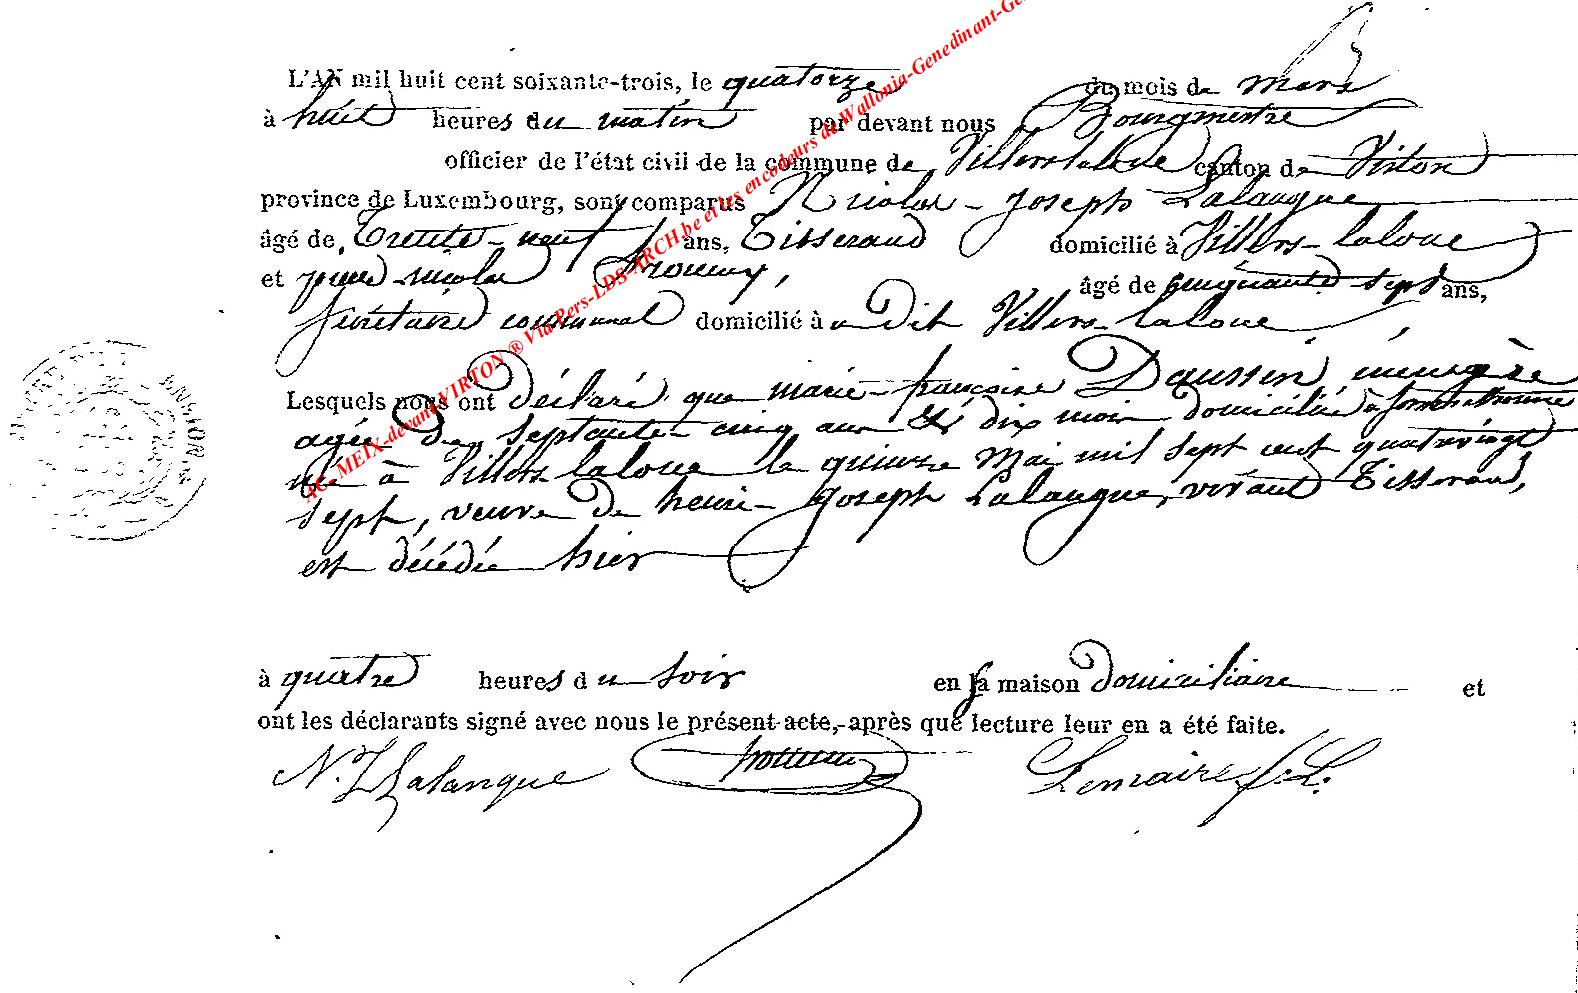 L'AN mil huit cent soixante-trois, le quatorze du mois de mars
à huit heures du matin par devant nous Bourgmestre
officier de l'état civil de la commune de Villers-laloue canton de Virton
province de Luxembourg, sont comparus Nicolas-Joseph Lalangue
âgé de Trente-neuf ans, Tisserand domicilié à Villers-laloue
et nicolas âgé de cinquante sept ans,
Sécrétaire communal domicilié à u dit Villers-laloue
Lesquels nous ont déclaré que marie-françoise Daussin, ménagère
agée De septante-cinq ans & dix mois domiciliée à
née à Villers-laloue le quinze Mai mil sept cent quatrevingt
sept, veuve De henri-Joseph Lalangue, vivant Tisserand,
est décédée hier
à quatre heures du soir en sa maison domiciliaire et
ont les déclarants signé avec nous le présent acte, après que lecture leur en a été faite.
N. J Lalangue Lemaire J. L.
4c. MEIX-devant-VIRTON ® Via Pers-LDS-ARCH.be et les encodeurs de Wallonia-Genedinant-Gen